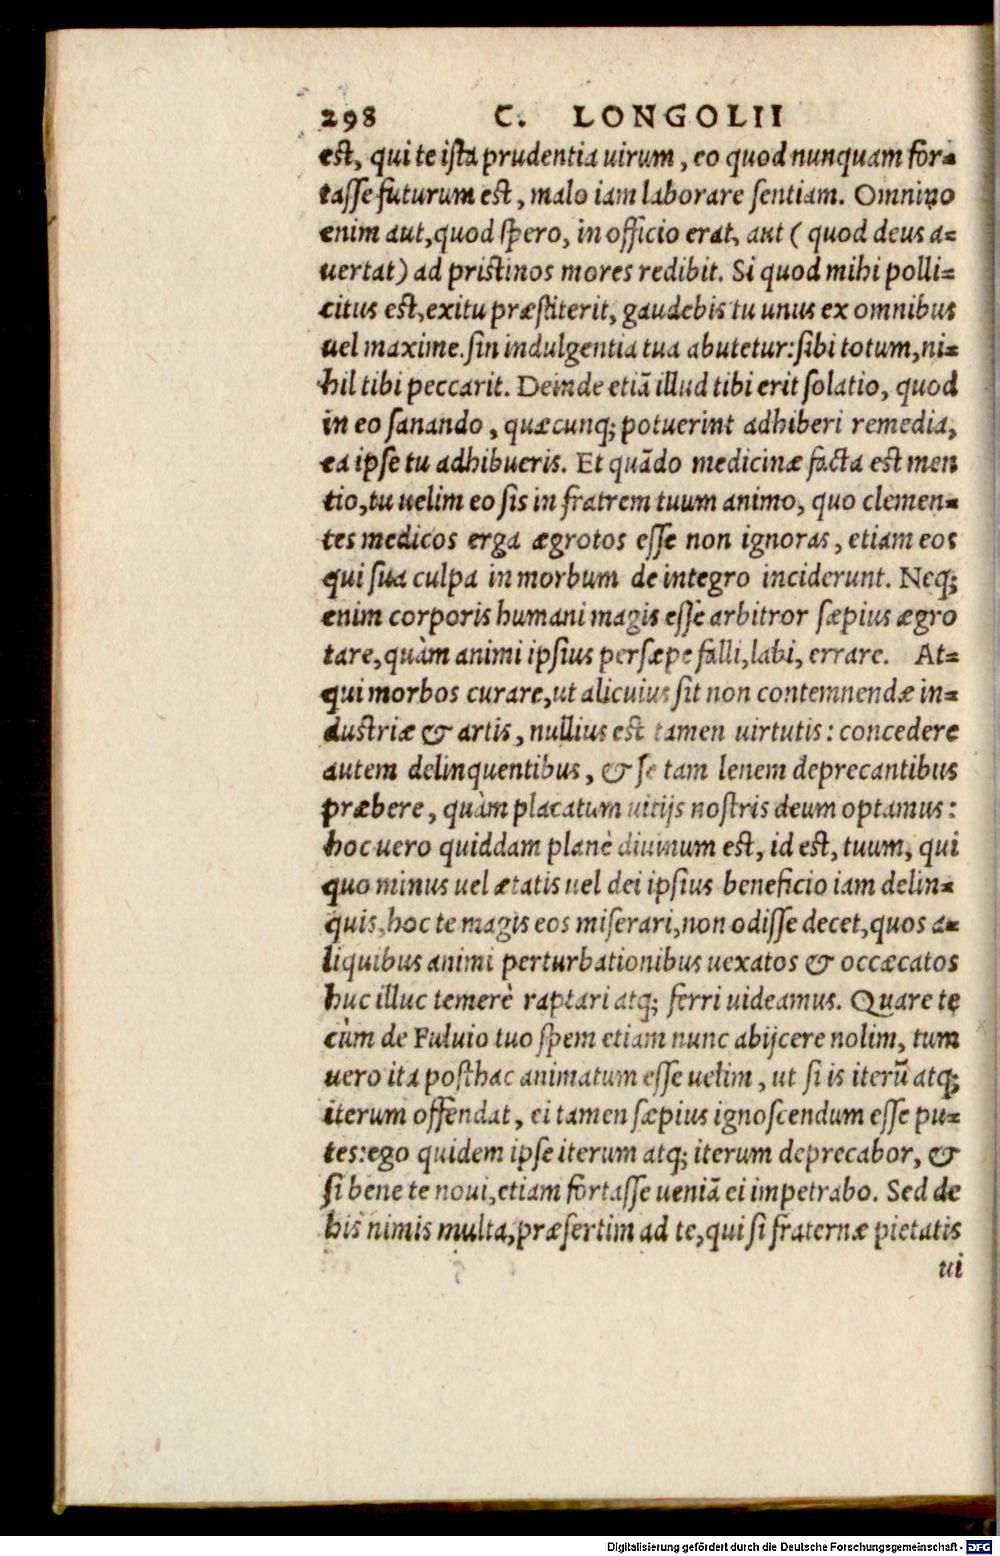 298 C. LONGOLII
est, qui te ista prudentia uirum, eo quod nunquam for-
tasse futurum est, malo iam laborare sentiam. Omnino
enim aut, quod spero, in officio erat, aut (quod deus a-
uertat) ad pristinos mores redibit. Si quod mihi polli-
citus est, exitu præstiterit, gaudebis tu unus ex omnibus
uel maxime. sin indulgentia tua abutetur: sibi totum, ni-
hil tibi peccarit. Deinde etiā illud tibi erit solatio, quod
in eo sanando, quæcunq; potuerint adhiberi remedia,
ea ipse tu adhibueris. Et quādo medicinæ facta est men
tio, tu uelim eo sis in fratrem tuum animo, quo clemen-
tes medicos erga ægrotos esse non ignoras, etiam eos
qui sua culpa in morbum de integro inciderunt. Neq;
enim corporis humani magis esse arbitror sæpius ægro
tare, quàm animi ipsius persæpe falli, labi, errare. At-
qui morbos curare, ut alicuius sit non contemnendæ in-
dustriæ & artis, nullius est tamen uirtutis: concedere
autem delinquentibus, & se tam lenem deprecantibus
præbere, quàm placatum uitijs nostris deum optamus:
hoc uero quiddam planè diuinum est, id est, tuum, qui
quo minus uel ætatis uel dei ipsius beneficio iam delin-
quis, hoc te magis eos miserari, non odisse decet, quos a-
liquibus animi perturbationibus uexatos & occæcatos
huc illuc temerè raptari atq; ferri uideamus. Quare te
cùm de Fuluio tuo spem etiam nunc abijcere nolim, tum
uero ita posthac animatum esse uelim, ut si is iterū atq;
iterum offendat, ei tamen sæpius ignoscendum esse pu-
tes: ego quidem ipse iterum atq; iterum deprecabor, &
si bene te noui, etiam fortasse ueniā ei impetrabo. Sed de
his nimis multa, præsertim ad te, qui si fraternæ pietatis
ui
Digitalisierung gefördert durch die Deutsche Forschungsgemeinschaft - DFG